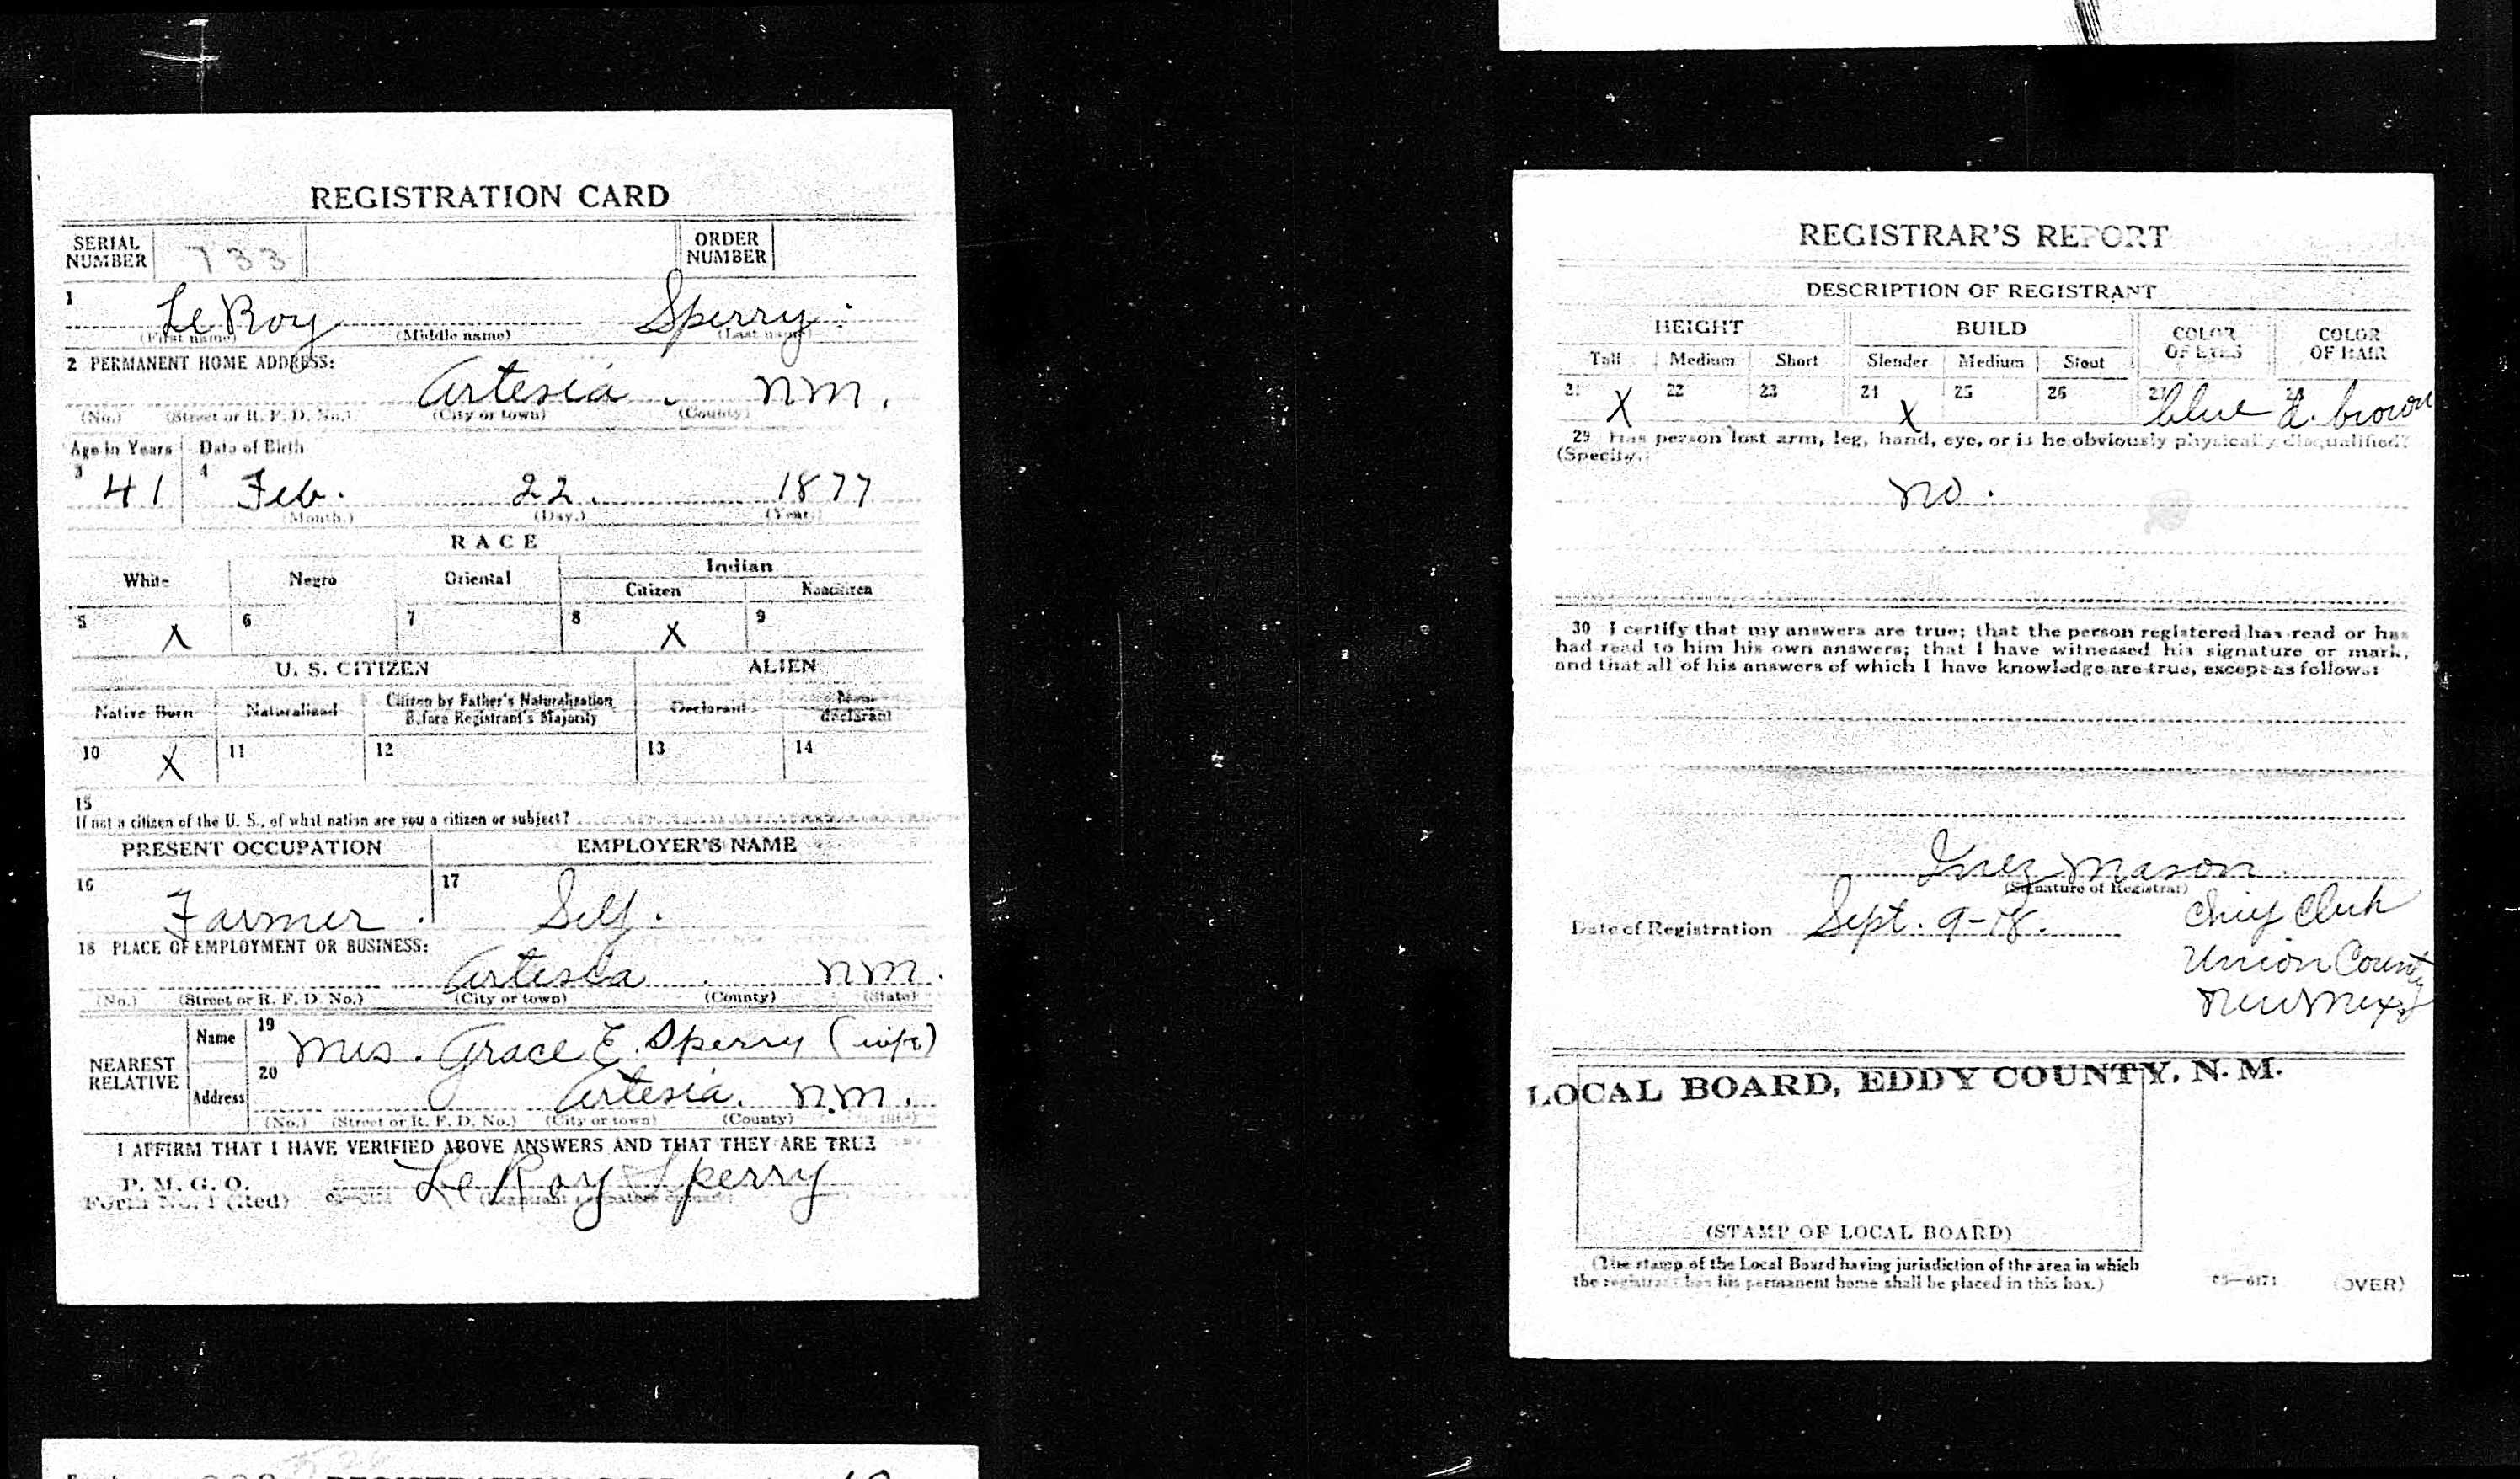 REGISTRATION CARD
SERIAL NUMBER 733 ORDER NUMBER
1 LeRoy Sperry.
(First name) (Middle name) (Last name)
2 PERMANENT HOME ADDRESS:
Artesia. N.M.
(No.) (Street or R. F. D. No.) (City or town) (County)
Age in Years Date of Birth
3 41 4 Feb. 22. 1877
(Month.) (Day.) (Year.)
RACE
White Negro Oriental Indian
Citizen Noncitizen
5 X 6 7 8 X 9
U. S. CITIZEN ALIEN
Native Born Naturalized Citizen by Father's Naturalization Before Registrant's Majority Declarant Non-declarant
10 X 11 12 13 14
15
If not a citizen of the U. S., of what nation are you a citizen or subject?
PRESENT OCCUPATION EMPLOYER'S NAME
16 Farmer. 17 Self.
18 PLACE OF EMPLOYMENT OR BUSINESS:
Artesia. N.M.
(No.) (Street or R. F. D. No.) (City or town) (County) (State)
NEAREST RELATIVE Name 19 Mrs. Grace E. Sperry (wife)
Address 20 Artesia. N.M.
(No.) (Street or R. F. D. No.) (City or town) (County)
I AFFIRM THAT I HAVE VERIFIED ABOVE ANSWERS AND THAT THEY ARE TRUE
P. M. G. O.
Form No. 1 (Red) LeRoy Sperry
REGISTRAR'S REPORT
DESCRIPTION OF REGISTRANT
HEIGHT BUILD COLOR OF EYES COLOR OF HAIR
Tall Medium Short Slender Medium Stout
21 X 22 23 24 X 25 26 27 blue 28 d. brown
29 Has person lost arm, leg, hand, eye, or is he obviously physically disqualified?
(Specify.)
No.
30 I certify that my answers are true; that the person registered has read or has
had read to him his own answers; that I have witnessed his signature or mark,
and that all of his answers of which I have knowledge are true, except as follows:
Inez Mason
(Signature of Registrar)
Chief Clerk
Date of Registration Sept. 9-18.
Union County
New Mex
LOCAL BOARD, EDDY COUNTY, N. M.
(STAMP OF LOCAL BOARD)
(The stamp of the Local Board having jurisdiction of the area in which
the registrant has his permanent home shall be placed in this box.)
03—6171 (OVER)